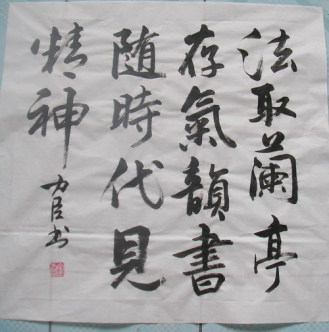 法取蘭亭
存氣韻書
隨時代見
精神
方臣书